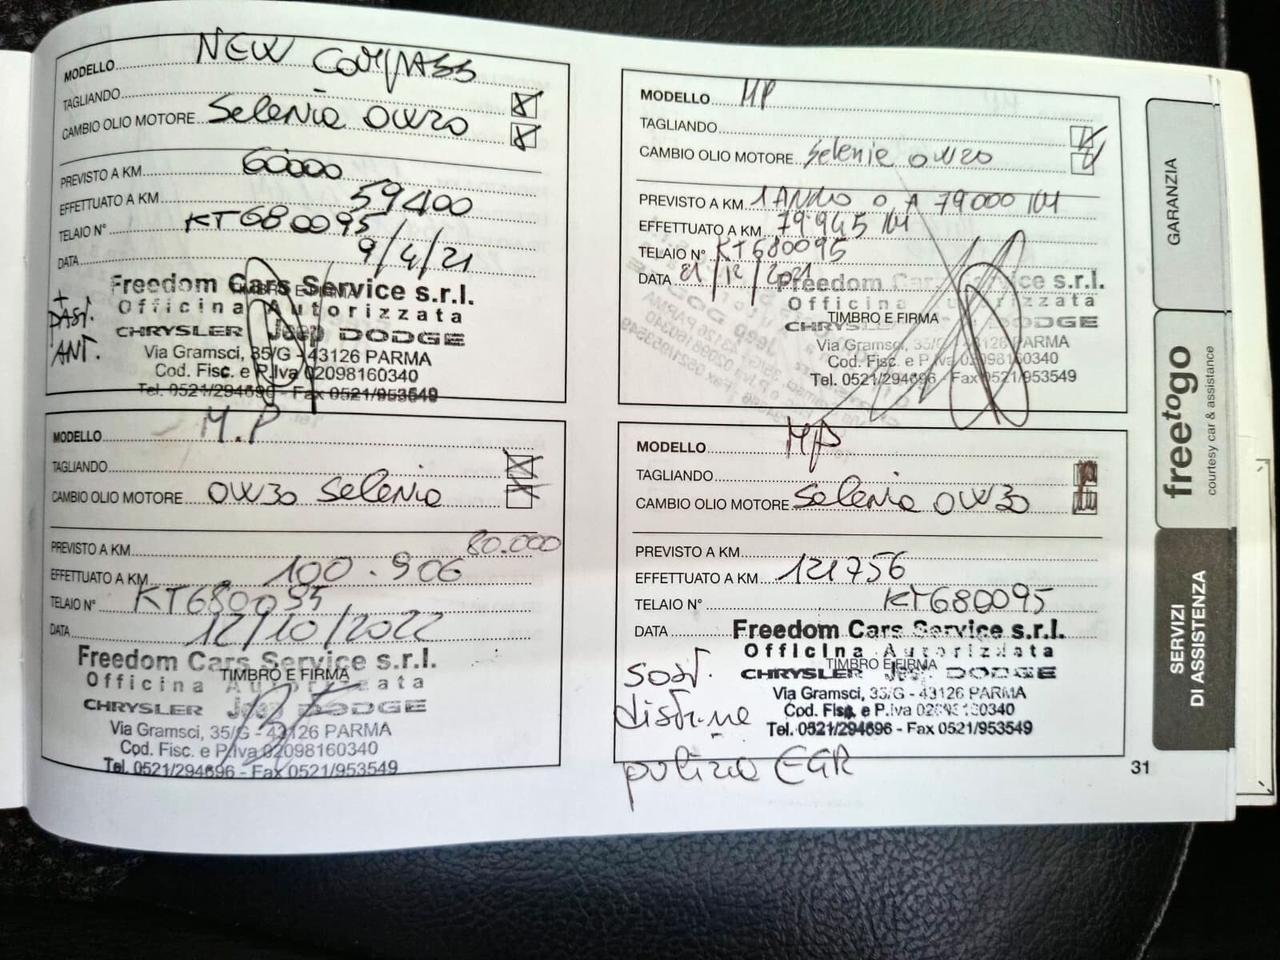 MODELLO NEW COMPASS
TAGLIANDO
CAMBIO OLIO MOTORE Selenia 0W20
PREVISTO A KM 60000
EFFETTUATO A KM 59400
TELAIO N° KT680095
DATA 9/4/21
+ PAST. ANT.
Freedom Cars Service s.r.l.
TIMBRO E FIRMA
Officina Autorizzata
CHRYSLER Jeep DODGE
Via Gramsci, 35/G - 43126 PARMA
Cod. Fisc. e P.Iva 02098160340
Tel. 0521/294696 - Fax 0521/953549
MODELLO MP
TAGLIANDO
CAMBIO OLIO MOTORE Selenia 0W20
PREVISTO A KM 1 ANNO O A 79000 KM
EFFETTUATO A KM 79.945 KM
TELAIO N° KT680095
DATA 21/12/2021
Freedom Cars Service s.r.l.
Officina Autorizzata
TIMBRO E FIRMA
CHRYSLER DODGE
Via Gramsci, 35/G - 43126 PARMA
Cod. Fisc. e P.Iva 02098160340
Tel. 0521/294696 - Fax 0521/953549
MODELLO M.P
TAGLIANDO
CAMBIO OLIO MOTORE 0W30 Selenia
PREVISTO A KM 80.000
EFFETTUATO A KM 100.906
TELAIO N° KT680095
DATA 12/10/2022
Freedom Cars Service s.r.l.
TIMBRO E FIRMA
Officina Autorizzata
CHRYSLER Jeep DODGE
Via Gramsci, 35/G - 43126 PARMA
Cod. Fisc. e P.Iva 02098160340
Tel. 0521/294696 - Fax 0521/953549
MODELLO MP
TAGLIANDO
CAMBIO OLIO MOTORE Selenia 0W30
PREVISTO A KM
EFFETTUATO A KM 121756
TELAIO N° KT680095
DATA
Freedom Cars Service s.r.l.
Officina Autorizzata
TIMBRO E FIRMA
CHRYSLER Jeep DODGE
Via Gramsci, 35/G - 43126 PARMA
Cod. Fisc. e P.Iva 02098160340
Tel. 0521/294696 - Fax 0521/953549
sost.
pulizia EGR
31
GARANZIA
freetogo
courtesy car & assistance
SERVIZI
DI ASSISTENZA